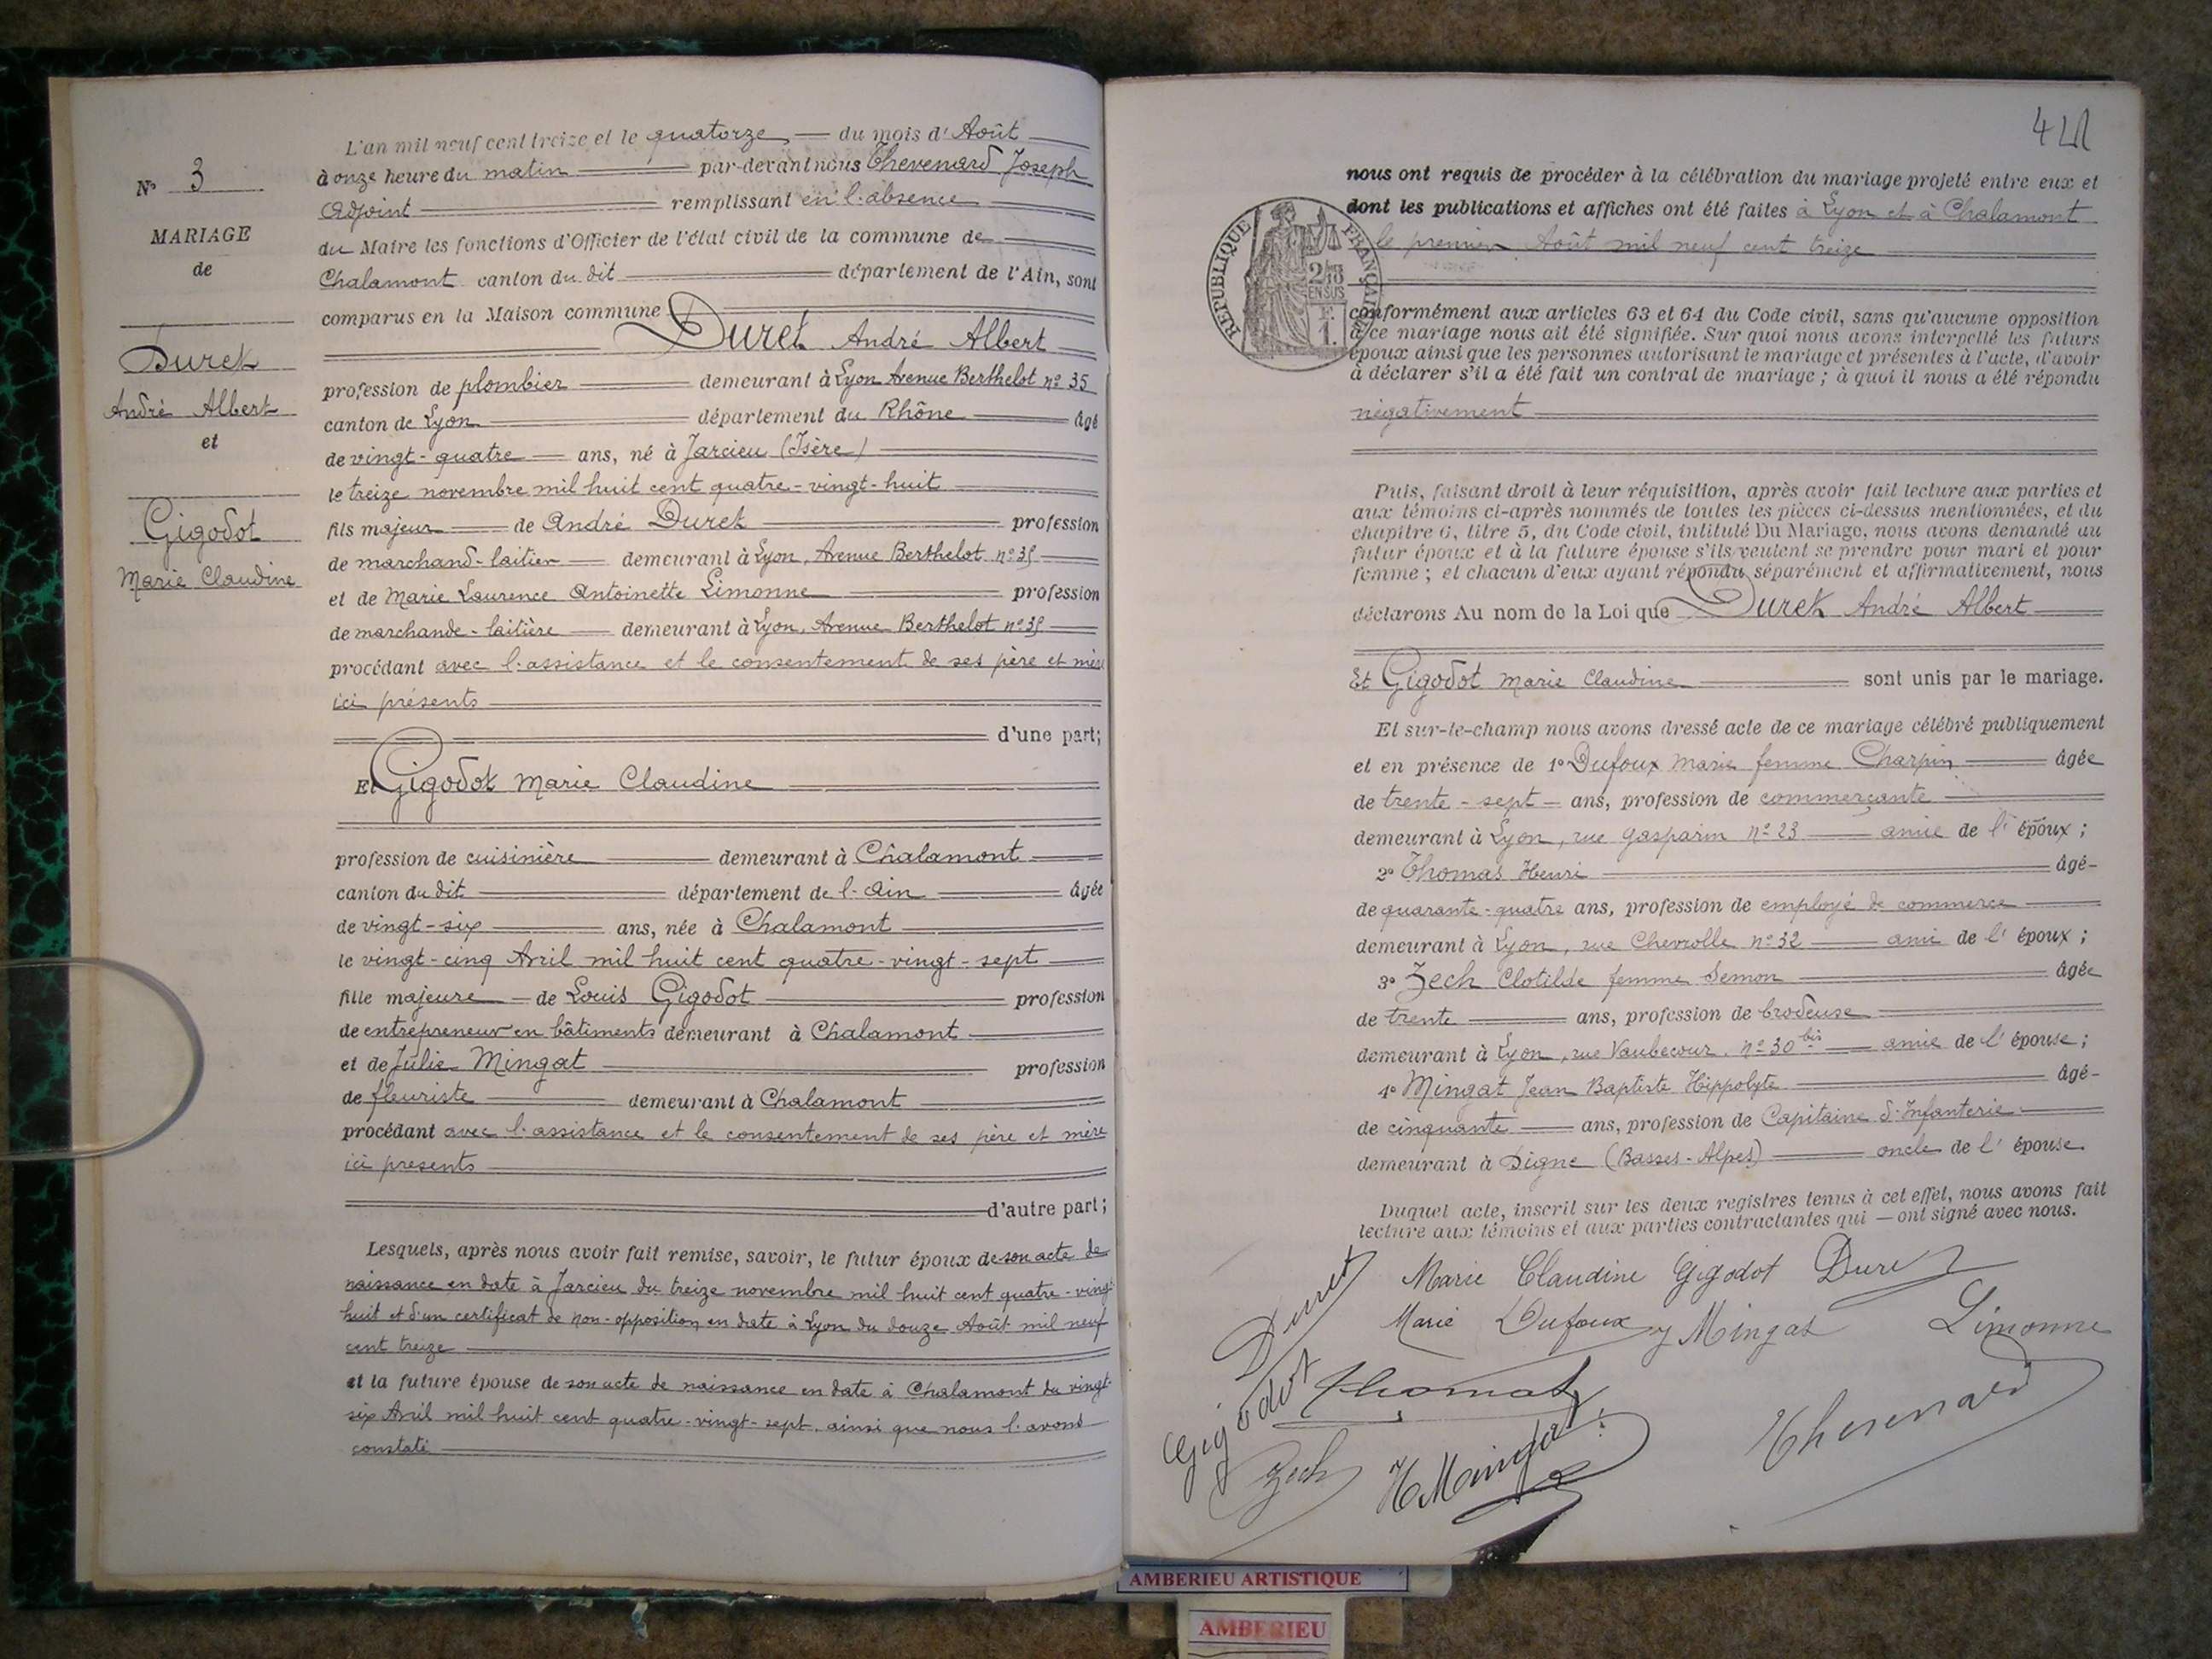 N° 3
MARIAGE
de
Duret
André Albert
et
Gigodot
Marie Claudine
L'an mil neuf cent treize et le quatorze du mois d'Août
à onze heure du matin par-devant nous Thevenard Joseph
Adjoint remplissant en l'absence
du Maire les fonctions d'Officier de l'état civil de la commune de
Chalamont canton du dit département de l'Ain, sont
comparus en la Maison commune
Duret André Albert
profession de plombier demeurant à Lyon Avenue Berthelot n° 35
canton de Lyon département du Rhône âgé
de vingt-quatre ans, né à Jarcieu (Isère)
le treize novembre mil huit cent quatre-vingt-huit
fils majeur de André Duret profession
de marchand-laitier demeurant à Lyon, Avenue Berthelot n° 35
et de Marie Laurence Antoinette Limonne profession
de marchande-laitière demeurant à Lyon, Avenue Berthelot n° 35
procédant avec l'assistance et le consentement de ses père et mère
ici présents
d'une part;
Et Gigodot Marie Claudine
profession de cuisinière demeurant à Chalamont
canton du dit département de l'Ain âgée
de vingt-six ans, née à Chalamont
le vingt-cinq Avril mil huit cent quatre-vingt-sept
fille majeure de Louis Gigodot profession
de entrepreneur en bâtiments demeurant à Chalamont
et de Julie Mingat profession
de fleuriste demeurant à Chalamont
procédant avec l'assistance et le consentement de ses père et mère
ici presents
d'autre part;
Lesquels, après nous avoir fait remise, savoir, le futur époux de son acte de
naissance en date à Jarcieu du treize novembre mil huit cent quatre-vingt-
huit et d'un certificat de non-opposition en date à Lyon du douze Août mil neuf
cent treize
et la future épouse de son acte de naissance en date à Chalamont du vingt-
six Avril mil huit cent quatre-vingt-sept, ainsi que nous l'avons
constaté
nous ont requis de procéder à la célébration du mariage projeté entre eux et
dont les publications et affiches ont été faites à Lyon et à Chalamont
le premier Août mil neuf cent treize
RÉPUBLIQUE FRANÇAISE
EN SUS
conformément aux articles 63 et 64 du Code civil, sans qu'aucune opposition
à ce mariage nous ait été signifiée. Sur quoi nous avons interpellé les futurs
époux ainsi que les personnes autorisant le mariage et présentes à l'acte, d'avoir
à déclarer s'il a été fait un contrat de mariage; à quoi il nous a été répondu
négativement
Puis, faisant droit à leur réquisition, après avoir fait lecture aux parties et
aux témoins ci-après nommés de toutes les pièces ci-dessus mentionnées, et du
chapitre 6, titre 5, du Code civil, intitulé Du Mariage, nous avons demandé au
futur époux et à la future épouse s'ils veulent se prendre pour mari et pour
femme; et chacun d'eux ayant répondu séparément et affirmativement, nous
déclarons Au nom de la Loi que Duret André Albert
Et Gigodot Marie Claudine sont unis par le mariage.
Et sur-le-champ nous avons dressé acte de ce mariage célébré publiquement
et en présence de 1° Dufoux Marie femme Charpin âgée
de trente-sept ans, profession de commerçante
demeurant à Lyon, rue Gasparin n° 23 amie de l'époux;
2° Thomas Henri âgé
de quarante-quatre ans, profession de employé de commerce
demeurant à Lyon, rue Chevrolle n° 32 ami de l'époux;
3° Zech Clotilde femme Semon âgée
de trente ans, profession de brodeuse
demeurant à Lyon, rue Vaubecour n° 30 bis amie de l'épouse;
4° Mingat Jean Baptiste Hippolyte âgé
de cinquante ans, profession de Capitaine d'Infanterie
demeurant à Digne (Basses-Alpes) oncle de l'épouse
Duquel acte, inscrit sur les deux registres tenus à cet effet, nous avons fait
lecture aux témoins et aux parties contractantes qui ont signé avec nous.
Marie Claudine Gigodot Duret
Marie Dufoux J Mingat Limonne
Duret
Gigodot
Thomas
Zech
H Mingat
Thevenard
AMBERIEU ARTISTIQUE
AMBERIEU